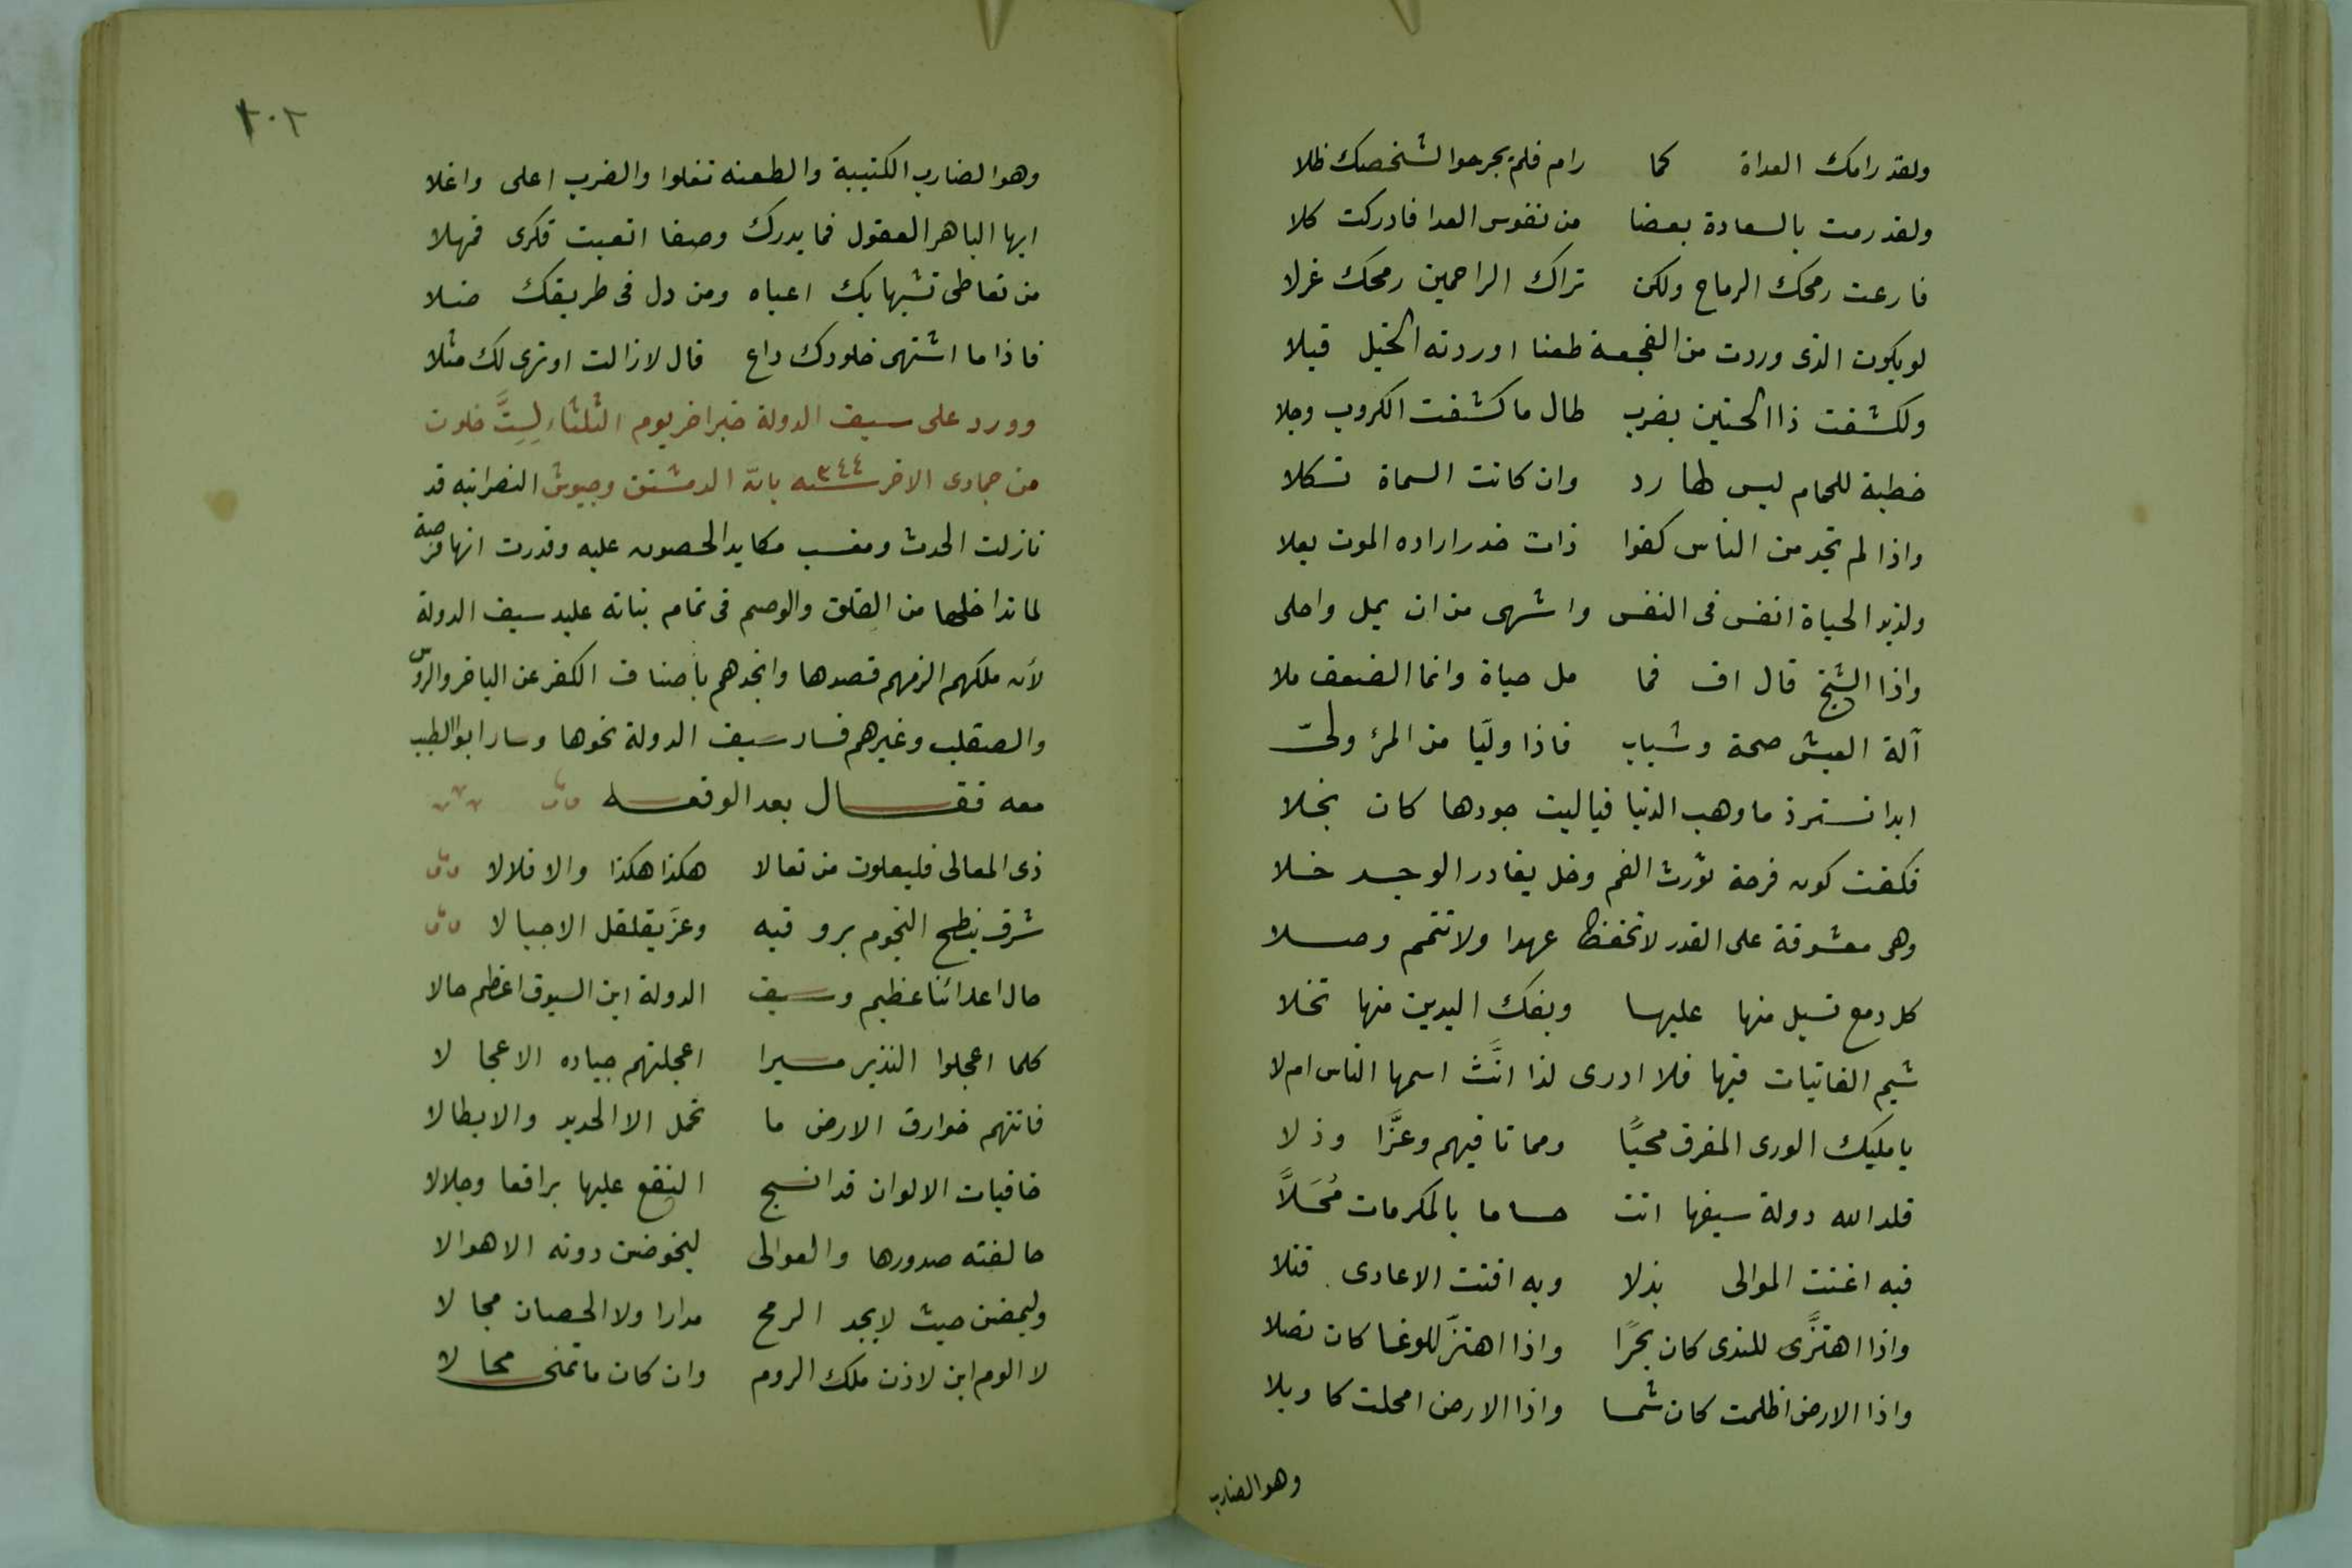 ولقد رامك العداة كما رام فلم يجرحوا لشخصك ظلا
ولقد رمت بالسعادة بعضا من نفوس العدا فادركت كلا
قارعت رمحك الرماح ولكن تراك الرامحين رمحك غزلا
لو يكون الذى وردت من الفجعة طعنا اوردته الخيل قبلا
ولكشفت ذا الحنين بضرب طال ما كشفت الكروب وجلا
خطبة للحمام ليس لها رد وان كانت المسماة ثكلا
واذا لم تجد من الناس كفوا ذات خدر اراده الموت بعلا
ولذيذ الحياة انفس فى النفس واشهى من ان يمل واحلى
واذا الشيخ قال اف فما مل حياة وانما الضعف ملا
آلة العيش صحة وشباب فاذا وليَّا من المرء ولىّ
ابدا تسترد ما وهب الدنيا فياليت جودها كان بخلا
فكفت كون فرحة تورث الغم وخل يغادر الوجد خلا
وهى معشوقة على الغدر لا تحفظ عهدا ولا تتمم وصلا
كل دمع تسيل منها عليها وبفك اليدين منها تخلا
شيم الغانيات فيها فلا ادرى لذا انَّث اسمها الناس ام لا
يا مليك الورى المفرق محيًا ومماتا فيهم وعزَّا وذلا
قلد الله دولة سيفها انت حساما بالمكرمات مُحَلاًّ
فبه اغنت الموالى بذلا وبه افنت الاعادى قتلا
واذا اهتزَّى للندى كان بحرًا واذا اهتزّ للوغا كان نصلا
واذا الارض اظلمت كان شمسا واذا الارض امحلت كا وبلا
وهو الضارب
٢٠٢
وهو الضارب الكتيبة والطعنه تغلوا والضرب اعلى واغلا
ايها الباهر العقول فما يدرك وصفا اتعبت فكرى فمهلا
من تعاطى تشبها بك اعياه ومن دل فى طريقك ضلا
فاذا ما اشتهى خلودك داع قال لازالت او ترى لك مثلا
وورد على سيف الدولة خبر اخر يوم الثلثاء لِسِتَّ خلون
من جمادى الاخر سنه ٣٤٤ بانّه الدمستق وجيوش النصرانيه قد
نازلت الحدث ونصب مكايد الحصون عليه وقدرت انها فرصة
لما تداخلها من القلق والوصم فى تمام بنائه عليد سيف الدولة
لأنه ملكهم الزمهم قصدها وانجدهم بأصناف الكفر عن البلغر والروس
والصقلب وغيرهم فسار سيف الدولة نحوها وسار ابو الطيب
معه فقال بعد الوقعه
ذى المعالى فليعلون من تعالا هكذا هكذا والا فلالا
شرف ينطح النجوم بروقيه وعزَ يقلقل الاجبالا
حال اعدائنا عظيم وسيف الدولة ابن السيوف اعظم حالا
كلما اعجلوا النذير مسيرا اعجلتهم جياده الاعجالا
فاتتهم خوارق الارض ما تحمل الا الحديد والابطالا
خافيات الالوان قد انسج النقع عليها براقعا وجلالا
حالفته صدورها والعوالى ليخوضن دونه الاهوالا
وليمضن حيث لا يجد الرمح مدارا ولا الحصان مجالا
لا الوم ابن لاذن ملك الروم وان كان ما تمنى محالا